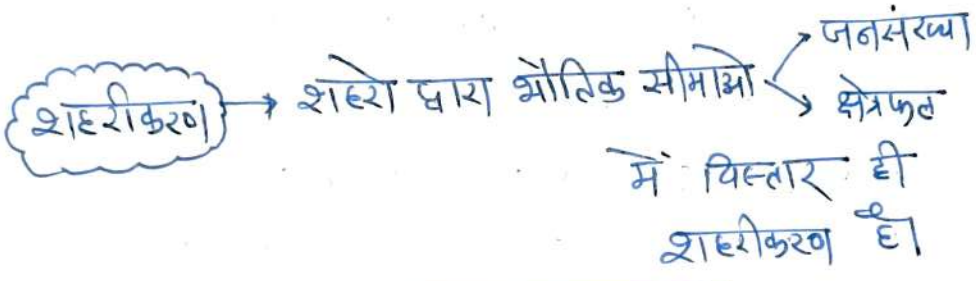 शहरीकरण → शहरो द्वारा भौतिक सीमाओ → जनसंख्या
→ क्षेत्रफल
में विस्तार ही
शहरीकरण है।